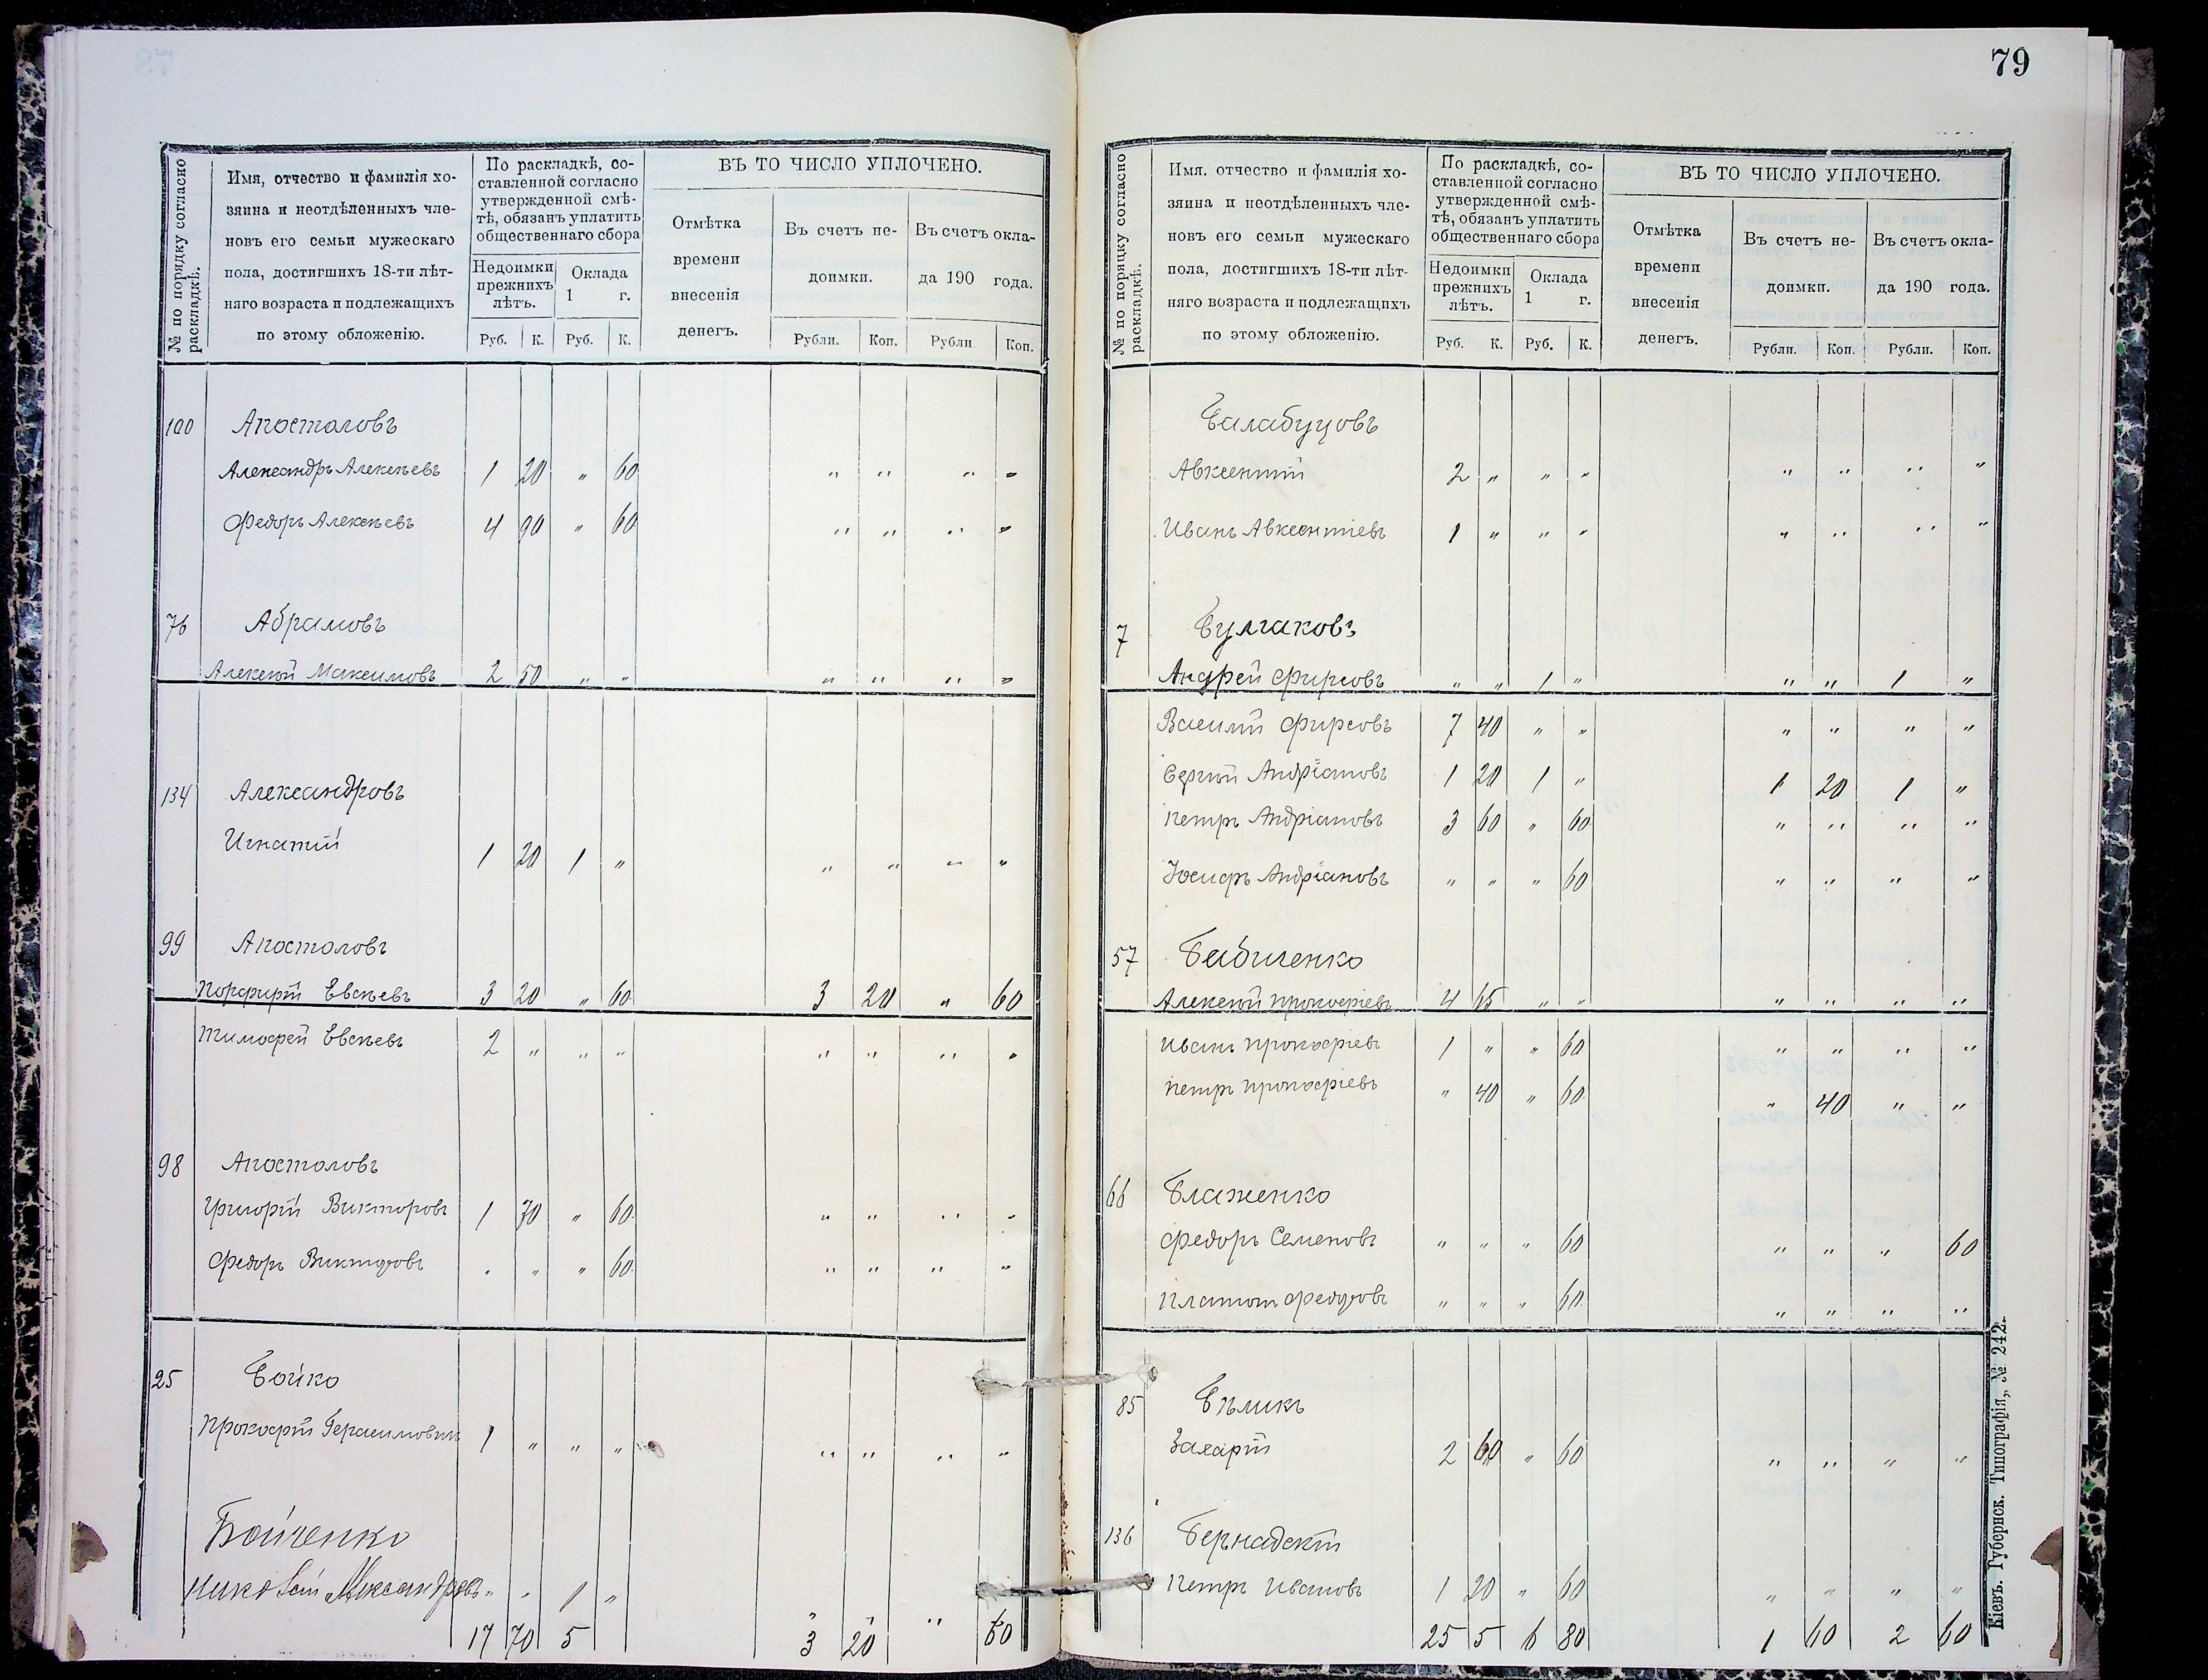 79
№ по порядку согласно раскладкѣ.
Имя, отчество и фамилія хо-
зяина и неотдѣленныхъ чле-
новъ его семьи мужескаго
пола, достигшихъ 18-ти лѣт-
няго возраста и подлежащихъ
по этому обложенію.
По раскладкѣ, со-
ставленной согласно
утвержденной смѣ-
тѣ, обязанъ уплатить
общественнаго сбора
Недоимки прежнихъ лѣтъ.
Оклада 1 г.
Руб. К. Руб. К.
ВЪ ТО ЧИСЛО УПЛОЧЕНО.
Отмѣтка
времени
внесенія
денегъ.
Въ счетъ не-
доимки.
Въ счетъ окла-
да 190 года.
Рубли. Коп. Рубли Коп.
100 Апостоловъ
Александръ Алексѣевъ 1 20 " 60 " " " "
Федоръ Алексѣевъ 4 90 " 60 " " " "
76 Абрамовъ
Алексѣй Максимовъ 2 50 " " " " " "
134 Александровъ
Игнатій 1 20 1 " " " " "
99 Апостоловъ
Порфирій Евсѣевъ 3 20 " 60 3 20 " 60
Тимофей Евсѣевъ 2 " " " " " " "
98 Апостоловъ
Григорій Викторовъ 1 70 " 60 " " " "
Федоръ Викторовъ " " " 60 " " " "
25 Бойко
Прокофій Герасимовичъ 1 " " " " " " "
Бойченко
Николай Александровъ " " 1 "
17 70 5 3 20 " 60
№ по порядку согласно раскладкѣ.
Имя, отчество и фамилія хо-
зяина и неотдѣленныхъ чле-
новъ его семьи мужескаго
пола, достигшихъ 18-ти лѣт-
няго возраста и подлежащихъ
по этому обложенію.
По раскладкѣ, со-
ставленной согласно
утвержденной смѣ-
тѣ, обязанъ уплатить
общественнаго сбора
Недоимки прежнихъ лѣтъ.
Оклада 1 г.
Руб. К. Руб. К.
ВЪ ТО ЧИСЛО УПЛОЧЕНО.
Отмѣтка
времени
внесенія
денегъ.
Въ счетъ не-
доимки.
Въ счетъ окла-
да 190 года.
Рубли. Коп. Рубли. Коп.
Балабуцовъ
Авксентій 2 " " " " " " "
Иванъ Авксентіевъ 1 " " " " " " "
7 Булгаковъ
Андрей Фирсовъ " " 1 " " " 1 "
Василій Фирсовъ 7 40 " " " " " "
Сергѣй Андріановъ 1 20 1 " 1 20 1 "
Петръ Андріановъ 3 60 " 60 " " " "
Іосифъ Андріановъ " " " 60 " " " "
57 Бабиченко
Алексѣй Прокофіевъ 4 65 " " " " " "
Иванъ Прокофіевъ 1 " " 60 " " " "
Петръ Прокофіевъ " 40 " 60 " 40 " "
66 Блаженко
Федоръ Семеновъ " " " 60 " " " 60
Платонъ Федоровъ " " " 60 " " " "
85 Бѣликъ
Захарій 2 60 " 60 " " " "
136 Бернадскій
Петръ Ивановъ 1 20 " 60 " " " "
25 5 6 80 1 60 2 60
Кіевъ. Губернск. Типографія, № 242.